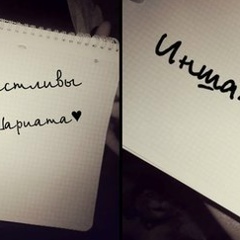 стливы
Шариата♥
Инша